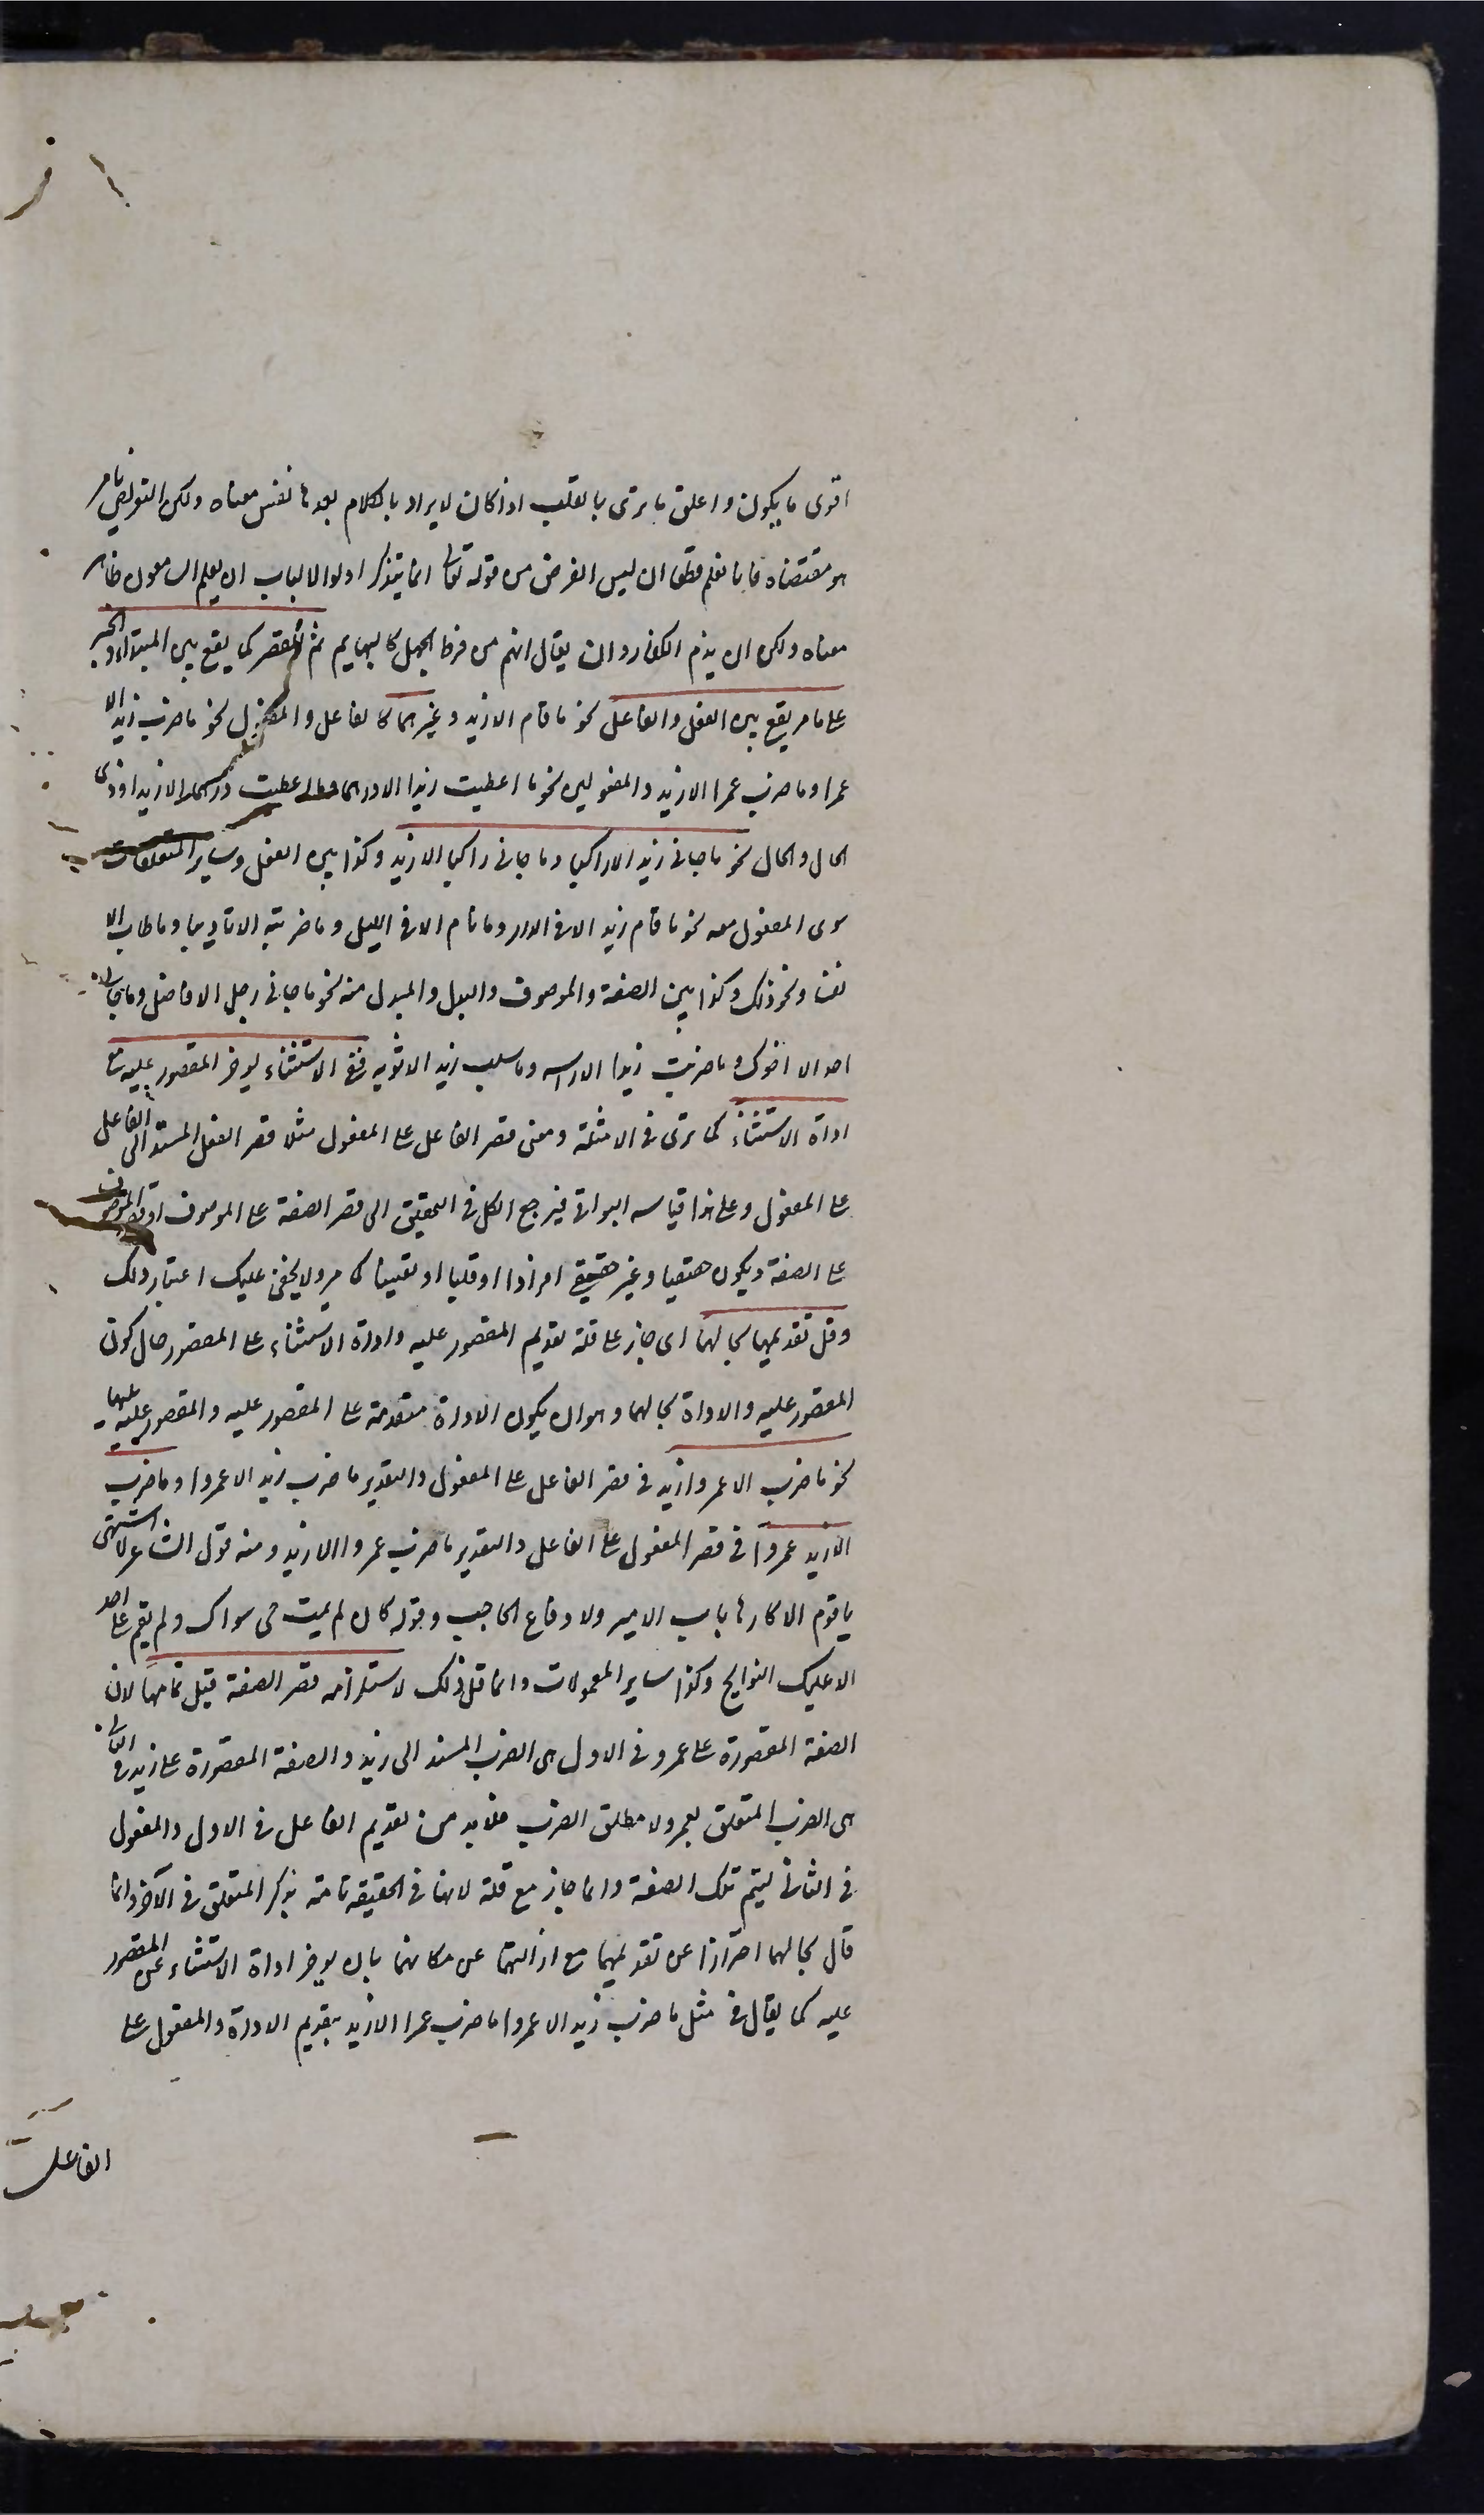 اقوى ما يكون واعلق ما ترى بالقلب اذا كان لا يراد بالكلام بعدها نفس معناه ولكن التعريض بامر
هو مقتضاه فانا نعلم قطعا ان ليس الغرض من قوله تعالى انما يتذكر اولوا الالباب ان يعلم السامعون ظاهر
معناه ولكن ان يذم الكفار وان يقال انهم من فرط الجهل كالبهايم ثم القصر كما يقع بين المبتداء والخبر
على ما مر يقع بين الفعل والفاعل نحو ما قام الا زيد وغيرهما كالفاعل والمفعول نحو ما ضرب زيد الا
عمرا وما ضرب عمرا الا زيد والمفعولين نحو ما اعطيت زيدا الا درهما وما اعطيت درهما الا زيدا وذى
الحال والحال نحو ما جانى زيد الا راكبا وما جانى راكبا الا زيد وكذا بين الفعل وساير المتعلقات
سوى المفعول معه نحو ما قام زيد الا فى الدار وما نام الا فى الليل وما ضربته الا تاديبا وما طاب الا
نفسا ونحو ذلك وكذا بين الصفة والموصوف والبدل والمبدل منه نحو ما جانى رجل الا فاضل وما جانى
احد الا اخوك وما ضربت زيدا الا راسه وما سلب زيد الا ثوبه ففى الاستثناء يوخر المقصور عليه مع
اداة الاستثناء كما ترى فى الامثلة ومعنى قصر الفاعل على المفعول مثلا قصر الفعل المسند الى الفاعل
على المفعول وعلى هذا قياس البواقى فيرجع الكل فى التحقيق الى قصر الصفة على الموصوف او قصر الموصوف
على الصفة ويكون حقيقيا وغير حقيقى افرادا او قلبا او تعيينا كما مر ولا يخفى عليك اعتبار ذلك
وقل تقديمهما بحالهما اى جاز على قلة تقديم المقصور عليه واداة الاستثناء على المقصور حال كون
المقصور عليه والاداة بحالهما وهو ان يكون الاداة متقدمة على المقصور عليه والمقصور عليه يليها
نحو ما ضرب الا عمروا زيد فى قصر الفاعل على المفعول والتقدير ما ضرب زيد الا عمروا وما ضرب
الا زيد عمروا فى قصر المفعول على الفاعل والتقدير ما ضرب عمروا الا زيد ومنه قول الشاعر لا اشتهى
يا قوم الا كارها باب الامير ولا دفاع الحاجب وقوله كان لم يمت حى سواك ولم يقم على احد
الا عليك النوايح وكذا ساير المعمولات وانما قل ذلك لاستلزامه قصر الصفة قبل تمامها لان
الصفة المقصورة على عمرو فى الاول هى الضرب المسند الى زيد والصفة المقصورة على زيد فى الثانى
هى الضرب المتعلق بعمرو لا مطلق الضرب فلا بد من تقديم الفاعل فى الاول والمفعول
فى الثانى ليتم تلك الصفة وانما جاز مع قلة لانها فى الحقيقة تامة بذكر المتعلق فى الآخر وانما
قال بحالهما احترازا عن تقديمهما مع ازالتهما عن مكانهما بان يوخر اداة الاستثناء عن المقصور
عليه كما يقال فى مثل ما ضرب زيد الا عمروا ما ضرب عمرا الا زيد بتقديم الاداة والمفعول على
الفاعل